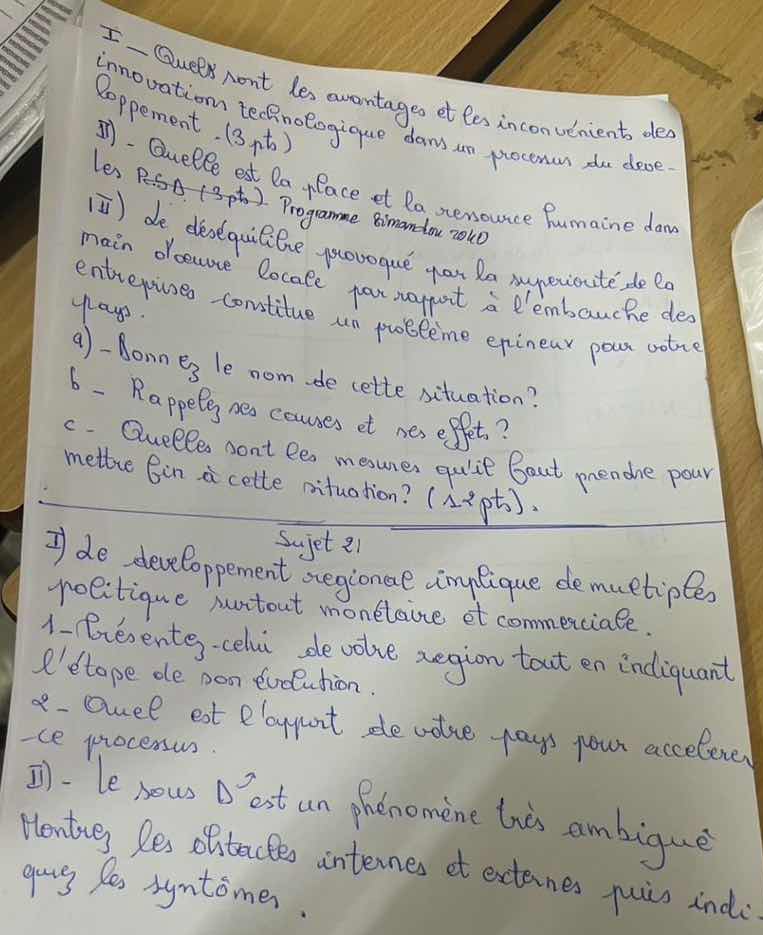 I - Quels sont les avantages et les inconvénients des
innovations technologique dans un processus du deve-
loppement. (3 pts)
II) - Quelle est la place et la ressource humaine dans
les P.S.A (3pts) Programme Simandou 2040
III) Le déséquilibre provoqué par la superiorité de la
main d'œuvre locale par rapport à l'embauche des
entreprises constitue un problème epineux pour votre
pays.
a) - Donnez le nom de cette situation?
b - Rappelez ses causes et ses effets?
c - Quelles sont les mesures qu'il faut prendre pour
mettre fin à cette situation? (12pts).
Sujet 21
I) Le developpement regional implique de multiples
politique surtout monétaire et commerciale.
1 - Présentez-celui de votre region tout en indiquant
l'étape de son évolution.
2 - Quel est l'apport de votre pays pour accelerer
-ce processus.
II) - Le sous D est un phénomène très ambiguë
Montrez les obstacles internes et externes puis indi-
quez les symtômes.